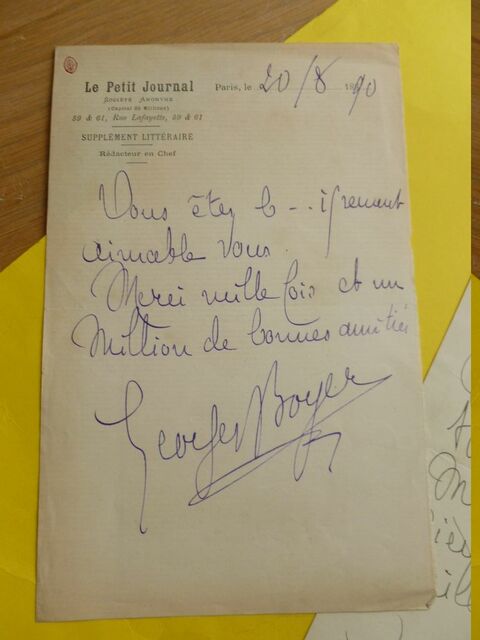 Le Petit Journal
Société Anonyme
(Capital 25 Millions)
59 & 61, Rue Lafayette, 59 & 61
SUPPLÉMENT LITTÉRAIRE
Rédacteur en Chef
Paris, le 20/8 1890
Vous êtes b - . . igrement
aimable vous.
Merci mille fois et un
Million de bonnes amitiés
Georges Boyer